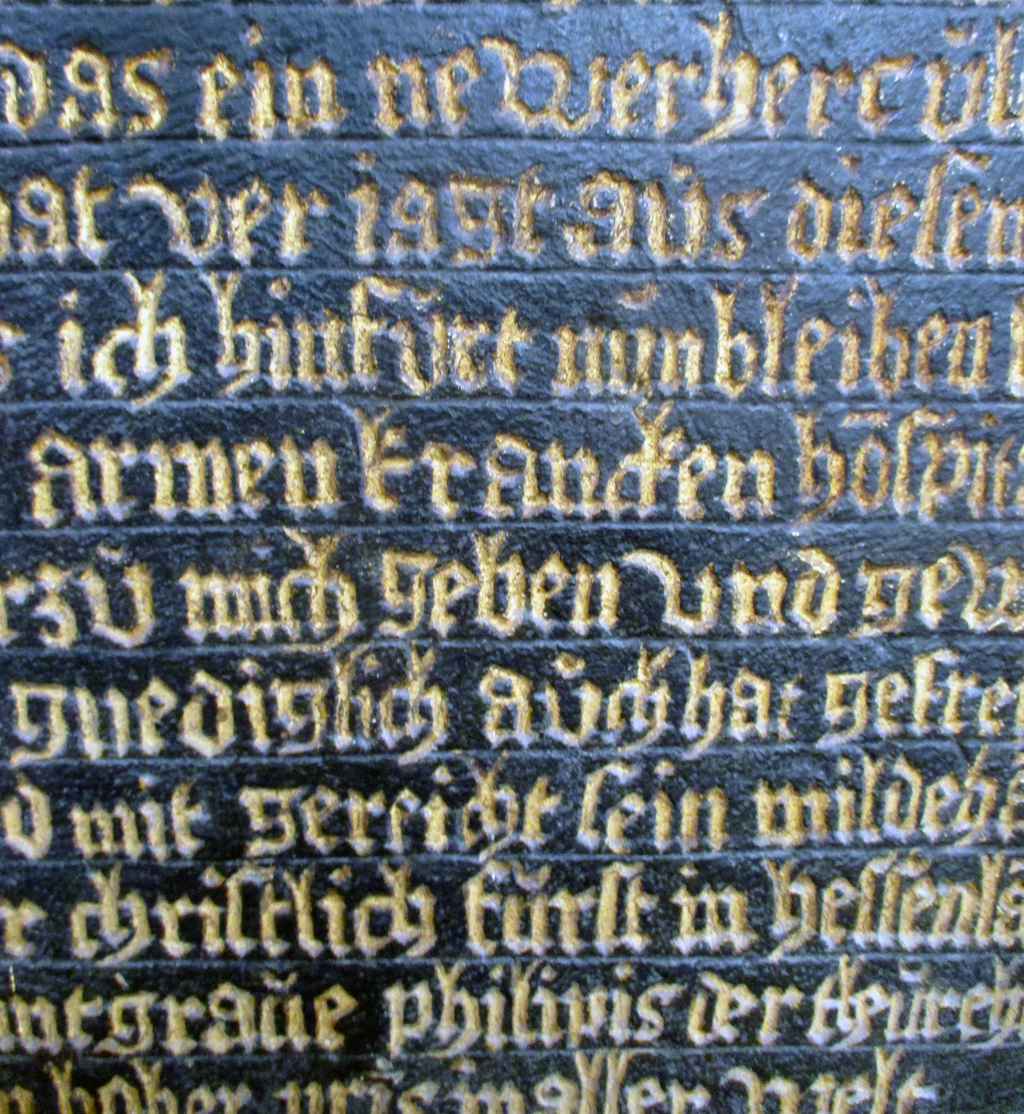 das ein newer hercŭl
hat ver iagt aŭs diesem
ich hinfŭrt nŭn bleiben
armen krancken hŏspit
rzŭ mich geben vnd gew
gnediglich aŭch hat gefrei
d mit gereicht sein mildeh
r christlich fŭrst in hessenlā
ntgraŭe philipis der
hoher in aller welt